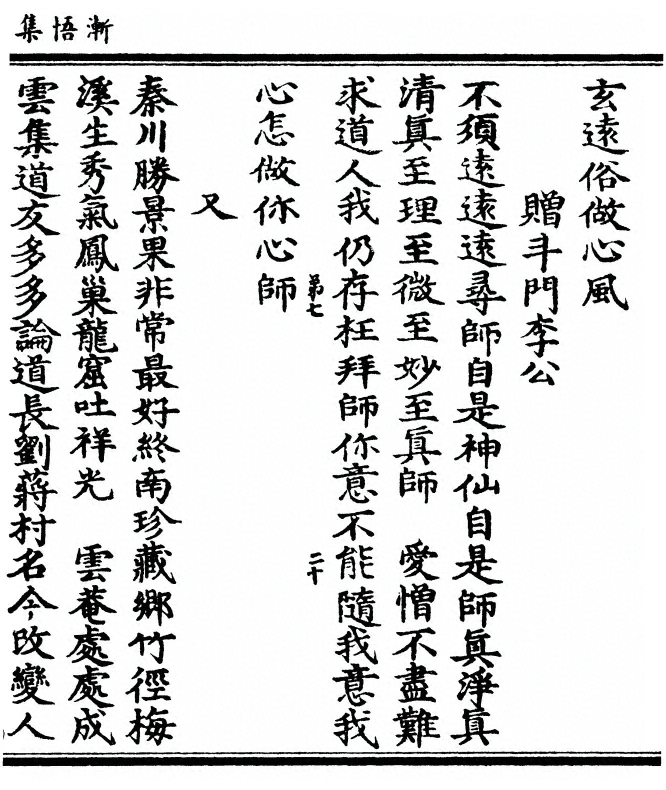 漸悟集
玄遠俗做心風
贈斗門李公
不須遠遠遠尋師自是神仙自是師眞淨眞
清眞至理至微至妙至眞師　愛憎不盡難
求道人我仍存枉拜師你意不能隨我意我
第七　二十
心怎做你心師
又
秦川勝景果非常最好終南珍藏鄉竹徑梅
溪生秀氣鳳巢龍窟吐祥光　雲菴處處成
雲集道友多多論道長劉蔣村名今改變人